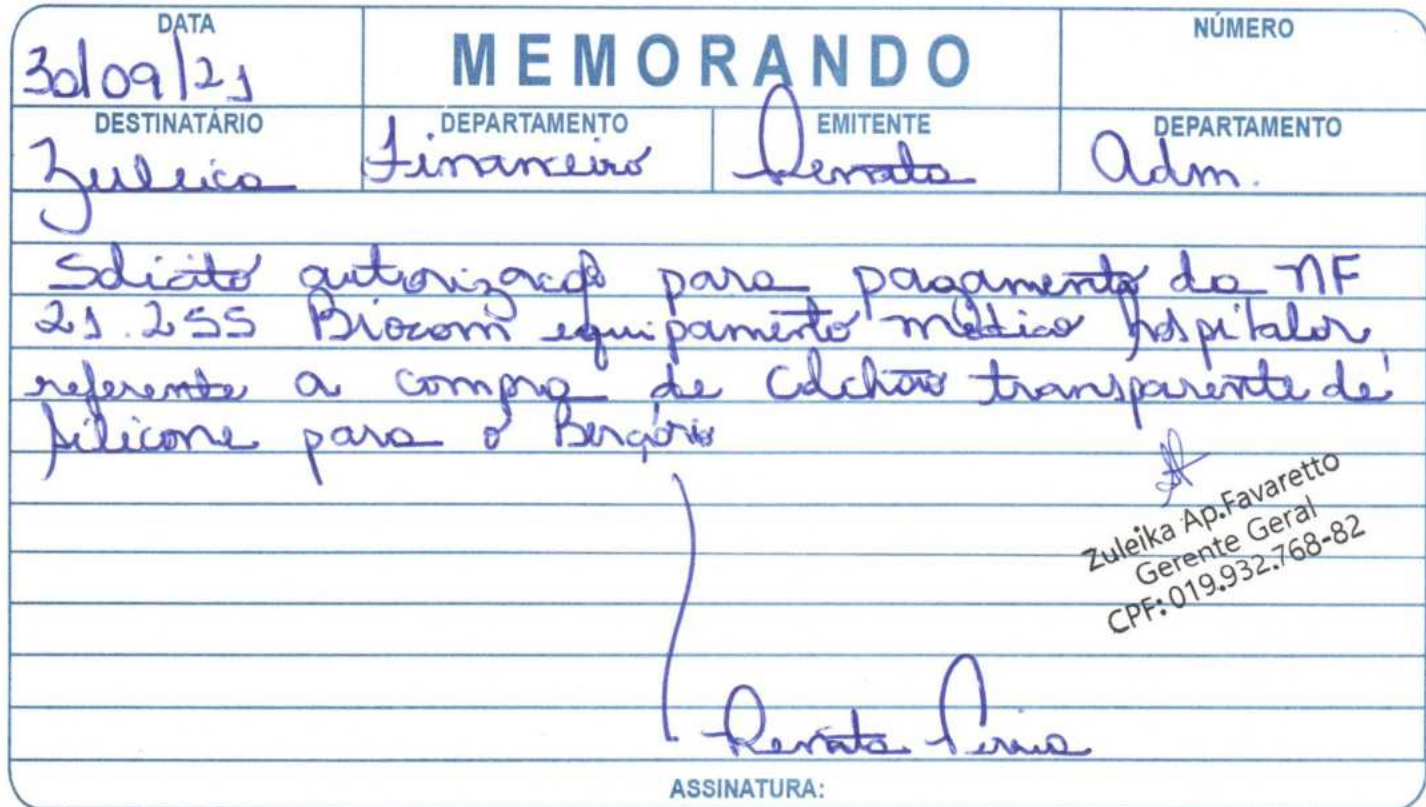 DATA
30/09/21
MEMORANDO
NÚMERO
DESTINATÁRIO
Zuleica
DEPARTAMENTO
Financeiro
EMITENTE
Renata
DEPARTAMENTO
Adm.
Solicito autorização para pagamento da NF
21.255 Biocom equipamento médico hospitalar
referente a compra de colchão transparente de
silicone para o Berçário
Zuleika Ap.Favaretto
Gerente Geral
CPF: 019.932.768-82
Renata
ASSINATURA: